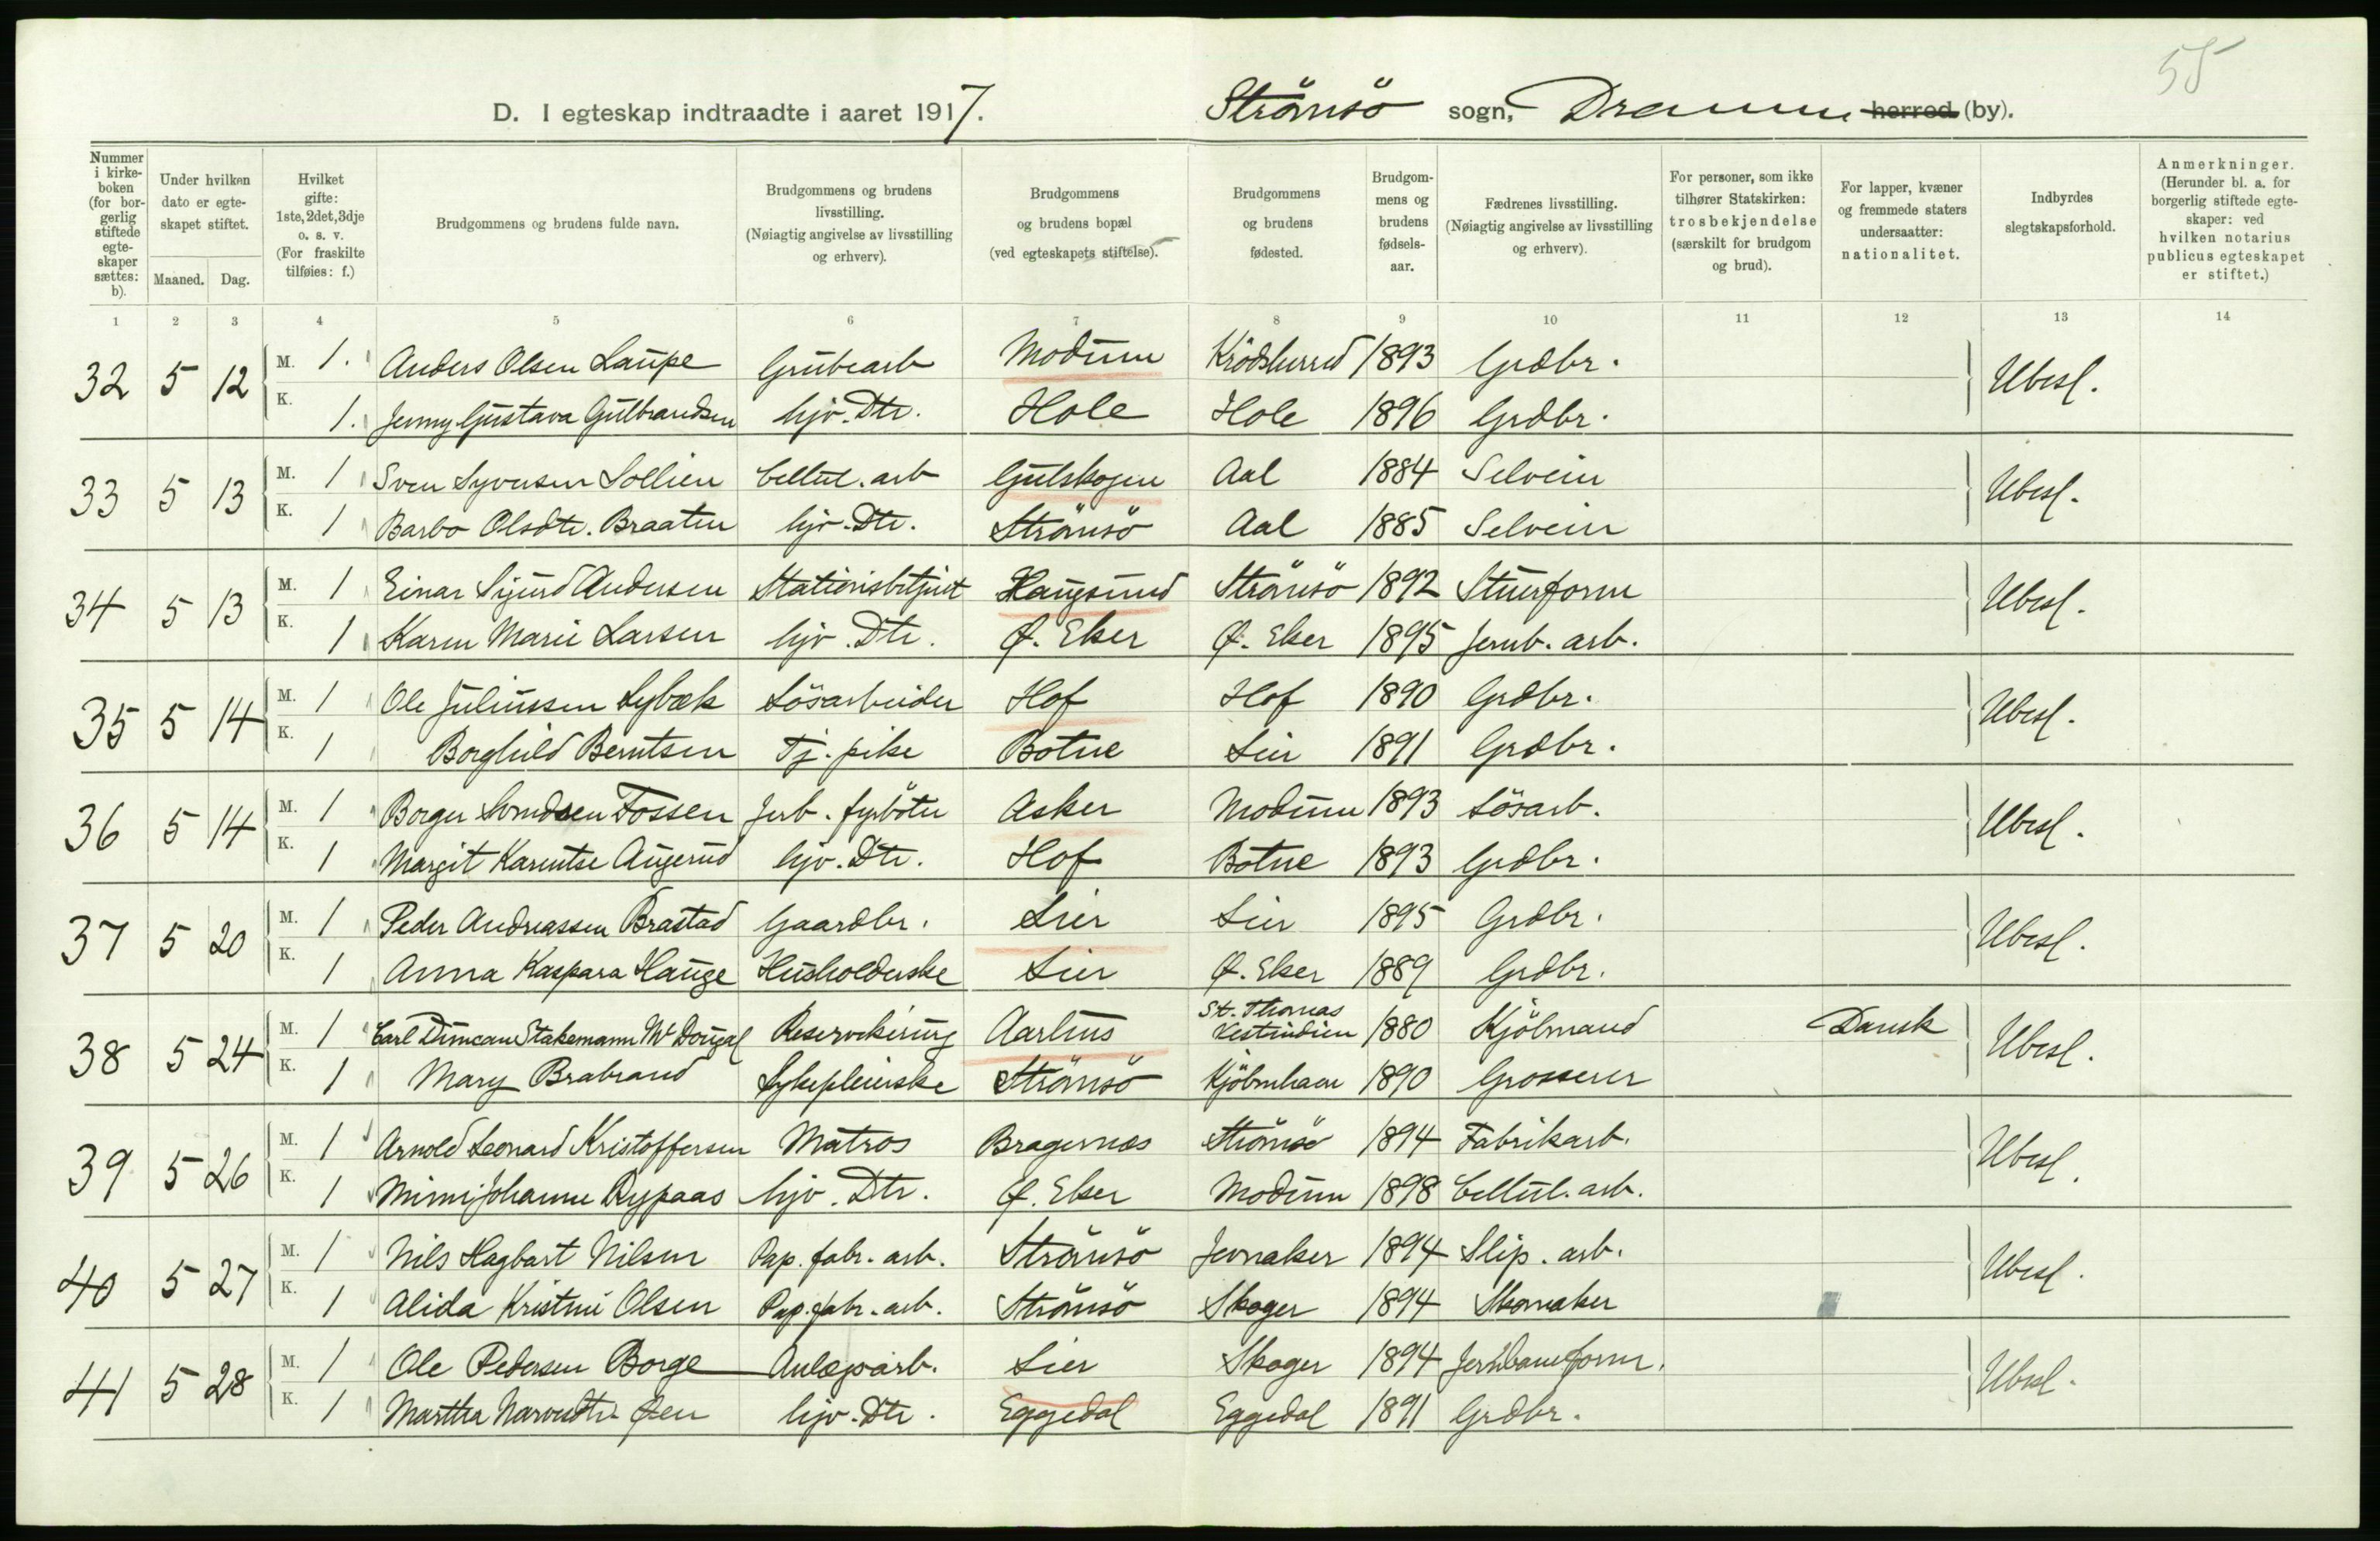 55
D. I egteskap indtraadte i aaret 1917. Strömsö sogn, Drammen herred (by).
Nummer i kirkeboken (for borgerlig stiftede egteskaper sættes: b).
Under hvilken dato er egteskapet stiftet.
Maaned. Dag.
Hvilket gifte: 1ste, 2det, 3dje o. s. v. (For fraskilte tilføies: f.)
Brudgommens og brudens fulde navn.
Brudgommens og brudens livsstilling. (Nøiagtig angivelse av livsstilling og erhverv).
Brudgommens og brudens bopæl (ved egteskapets stiftelse).
Brudgommens og brudens fødested.
Brudgommens og brudens fødselsaar.
Fædrenes livsstilling. (Nøiagtig angivelse av livsstilling og erhverv).
For personer, som ikke tilhører Statskirken: trosbekjendelse (særskilt for brudgom og brud).
For lapper, kvæner og fremmede staters undersaatter: nationalitet.
Indbyrdes slegtskapsforhold.
Anmerkninger. (Herunder bl. a. for borgerlig stiftede egteskaper: ved hvilken notarius publicus egteskapet er stiftet.)
1 2 3 4 5 6 7 8 9 10 11 12 13 14
32 5 12 M. 1. Anders Olsen Laupe Grubearb Modum Krödsherred 1893 Grdbr. Ubesl.
K. 1. Jenny Gustava Gulbrandsen hjv. Dtr. Hole Hole 1896 Grdbr.
33 5 13 M. 1 Sven Syversen Sollien Cellul. arb Gulskogen Aal 1884 Selveier Ubesl.
K. 1 Barbo Olsdtr. Braaten hjv. Dtr. Strömsö Aal 1885 Selveier
34 5 13 M. 1 Einar Sigurd Andersen Stationsbetjent Haugsund Strömsö 1892 Stuerform Ubesl.
K. 1 Karen Marie Larsen hjv. Dtr. Ø. Eker Ø. Eker 1895 Jernb. arb.
35 5 14 M. 1 Ole Juliussen Sybæk Lösarbeider Hof Hof 1890 Grdbr. Ubesl.
K. 1 Borghild Berntsen Tj. pike Botne Lier 1891 Grdbr.
36 5 14 M. 1 Borger Svendsen Fossen Jerb. fyrböter Asker Modum 1893 Lösarb. Ubesl.
K. 1 Margit Karentse Augerud hjv. Dtr. Hof Botne 1893 Grdbr.
37 5 20 M. 1 Peder Andreassen Brastad Gaardbr. Lier Lier 1895 Grdbr. Ubesl.
K. 1 Anna Kaspara Hauge Husholderske Lier Ø. Eker 1889 Grdbr.
38 5 24 M. 1 Carl Duncan Stakemann Mc Dougal Reservekirurg Aarhus St. Thomas Vestindien 1880 Kjöbmand Dansk Ubesl.
K. 1 Mary Brabrand Sykepleierske Strömsö Kjöbenhavn 1890 Grosserer
39 5 26 M. 1 Arnold Leonard Kristoffersen Matros Bragernes Strömsö 1894 Fabrikarb. Ubesl.
K. 1 Mimi Johanne Rypaas hjv. Dtr. Ø. Eker Modum 1898 Cellul. arb.
40 5 27 M. 1 Nils Hagbart Nilsen Pap. fabr. arb. Strömsö Jevnaker 1894 Slip. arb. Ubesl.
K. 1 Alida Kristine Olsen Pap. fabr. arb. Strömsö Skoger 1894 Skomaker
41 5 28 M. 1 Ole Pedersen Borge Anlægsarb. Lier Skoger 1894 Jernbaneform. Ubesl.
K. 1 Martha Narvesdtr. Øen hjv. Dtr. Eggedal Eggedal 1891 Grdbr.